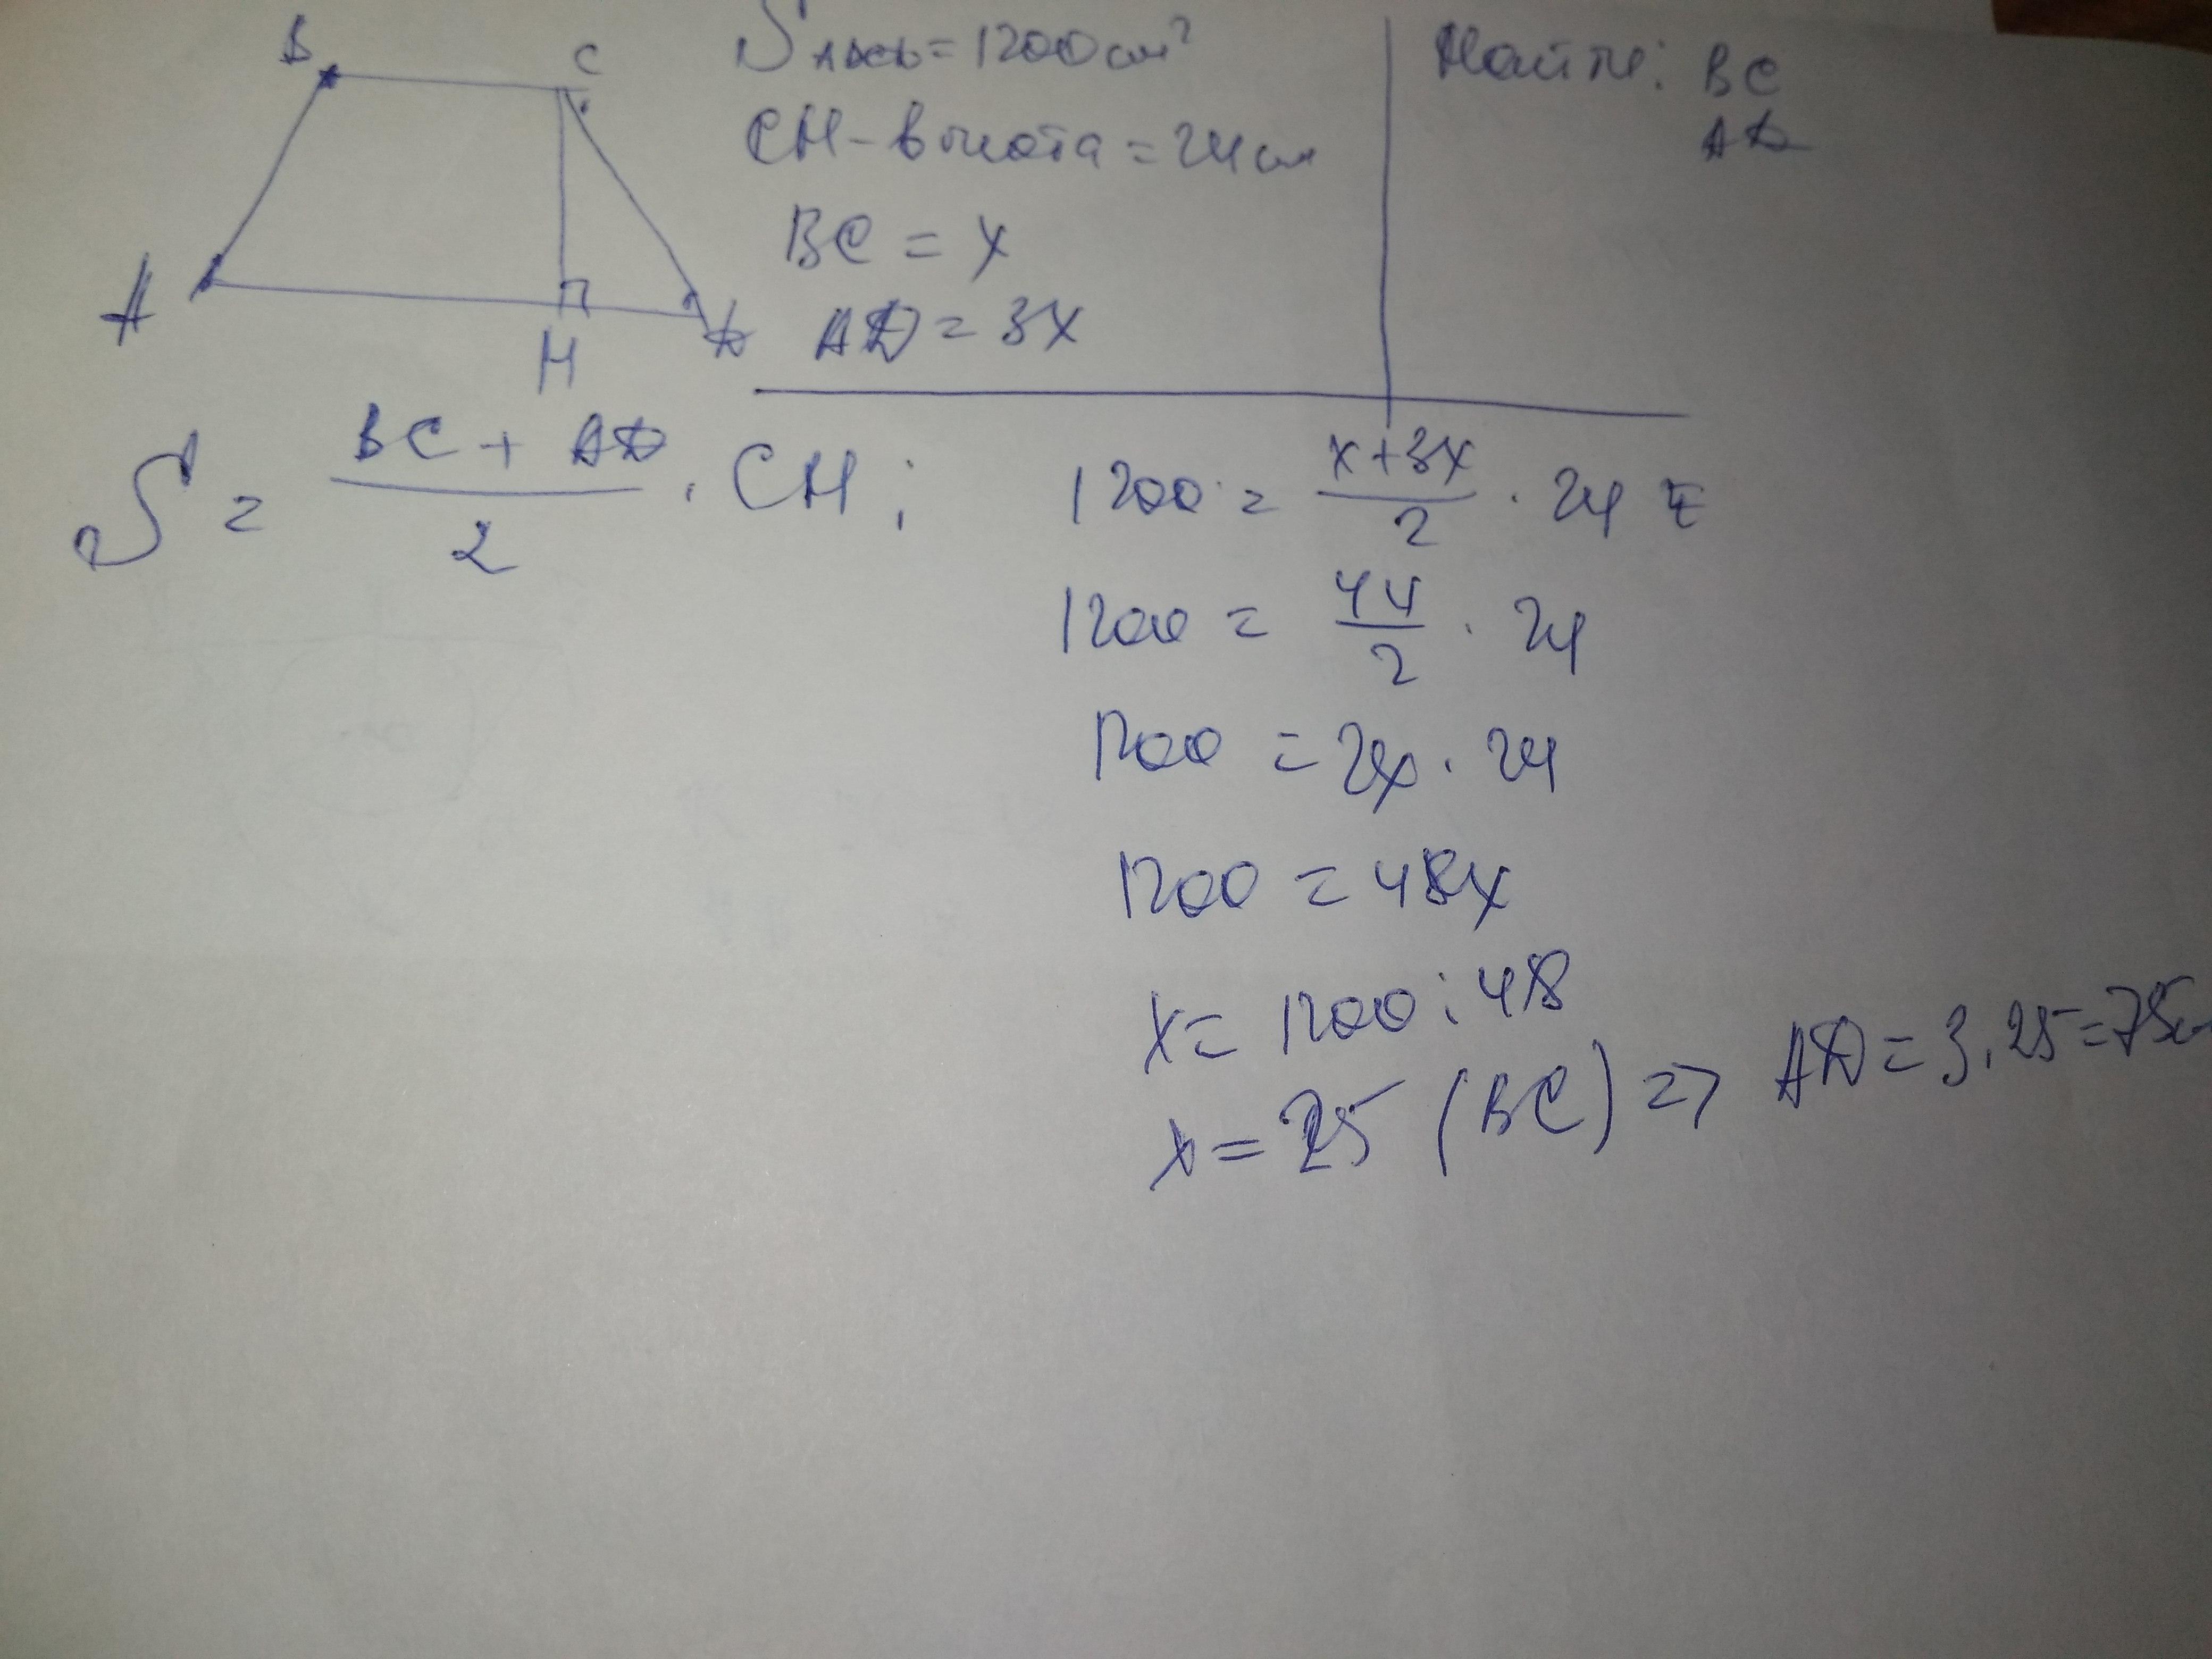 B C
A H D
S ABCD = 1200 см²
CH - высота = 24 см
BC = x
AD = 3x
Найти: BC
AD
S = (BC + AD)/2 · CH;
1200 = (x+3x)/2 · 24 =
1200 = 4x/2 · 24
1200 = 2x · 24
1200 = 48x
x = 1200 : 48
x = 25 (BC) => AD = 3 · 25 = 75см